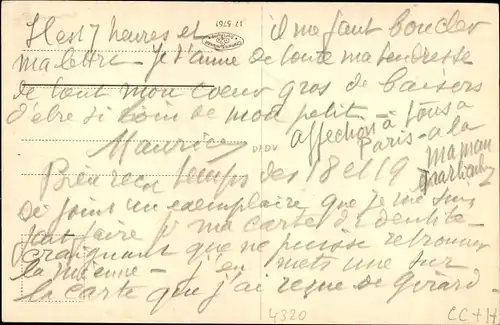 Il est 7 heures et il me faut boucler
ma lettre - Je t'aime de toute ma tendresse
de tout mon coeur gros de baisers
d'être si loin de mon petit -
Maurice
affection à tous à
Paris - à la
maman
Bien reçu temps des 18 et 19
Ci joint un exemplaire que je me suis
fait faire p ma carte d'identité
craignant que ne puisse retrouver
la mienne - j'en mets une sur
la carte que j'ai reçue de Girard -
4320
CC+H
17 5761